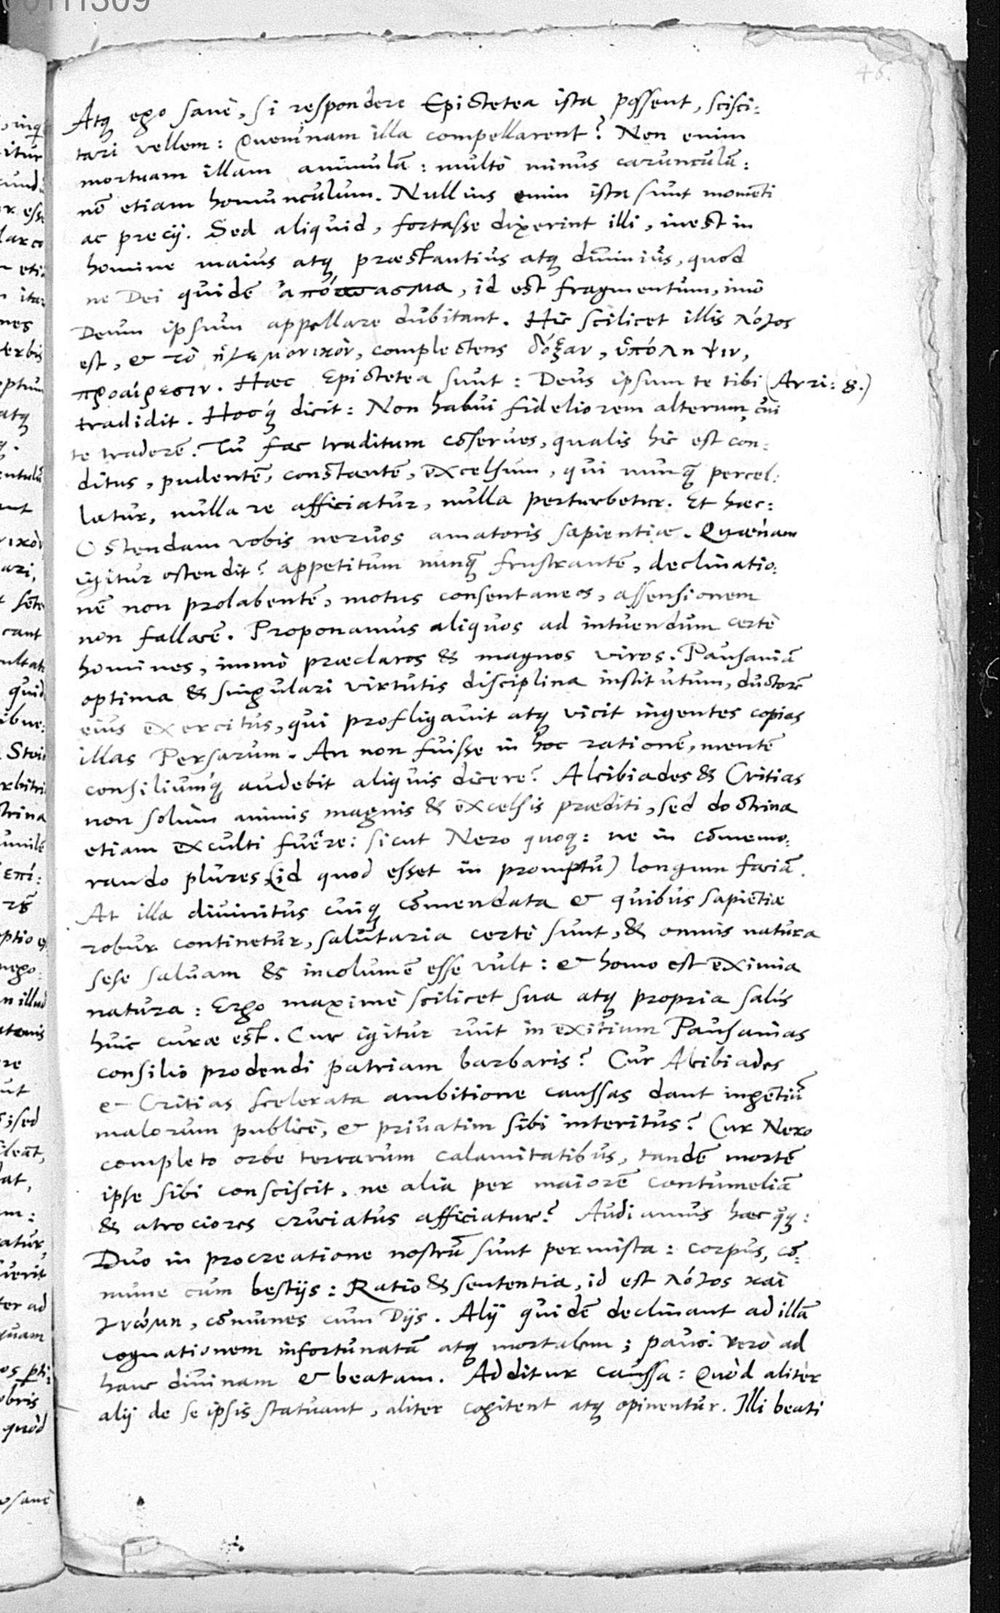 00111309
46.
Atq; ego sanè, si respondere Epictetea ista possent, scisci-
tari vellem: Quemnam illa compellarent? Non enim
mortuam illam animulā: multò minus carunculā:
nē etiam homunculum. Nullius enim ista sunt momēti
ac precij. Sed aliquid, fortasse dixerint illi, inest in
homine maius atq; præstantius atq; diuinius, quod
ne Dei quidē ἀπόσπασμα, id est fragmentum, imò
Deum ipsum appellare dubitant. Hic scilicet illis λόγος
est, & τὸ ἡγεμονικόν, complectens δόξαν, ὑπόληψιν,
προαίρεσιν. Hæc Epictetea sunt: Deus ipsum te tibi (Arri: 8.)
tradidit. Hocq́; dicit: Non habui fideliorem alterum, cui
te traderē. Tu fac traditum cōserues, qualis hic est con-
ditus, pudentē, constantē, excelsum, qui nunq̄ percel-
latur, nulla re afficiatur, nulla perturbetur. Et hæc:
Ostendam vobis neruos amatoris sapientiæ. Quænam
igitur ostendit? appetitum nunq̄ frustrantē, declinatio-
nē non prolabentē, motus consentaneos, assensionem
non fallacē. Proponamus aliquos ad intuendum certè
homines, immò præclaros & magnos viros. Pausaniā
optima & singulari virtutis disciplina institutum, ductorē
eius exercitus, qui profligauit atq; vicit ingentes copias
illas Persarum. An non fuisse in hoc rationē, mentē
consiliumq́; audebit aliquis dicere? Alcibiades & Critias
non solùm animis magnis & excelsis præditi, sed doctrina
etiam exculti fuêre: sicut Nero quoq;: ne in cōmemo-
rando plures (id quod esset in promptu) longum faciā.
At illa diuinitus cuiq; cōmendata & quibus sapiētiæ
robur continetur, salutaria certè sunt, & omnis natura
sese saluam & incolumē esse vult: & homo est eximia
natura: Ergo maximè scilicet sua atq; propria salus
huic curæ est. Cur igitur ruit in exitium Pausanias
consilio prodendi patriam barbaris? Cur Alcibiades
& Critias scelerata ambitione caussas dant ingētiū
malorum publicè, & priuatim sibi interitus? Cur Nero
completo orbe terrarum calamitatibus, tandē mortē
ipse sibi consciscit, ne alia per maiorē contumeliā
& atrociores cruciatus afficiatur? Audiamus hæc q́q;:
Duo in procreatione nostrū sunt permista: corpus, cō-
mune cum bestijs: Ratio & sententia, id est λόγος καὶ
γνώμη, cōmunes cum Dijs. Alij quidē declinant ad illā
cognationem infortunatā atq; mortalem; pauci vero ad
hanc diuinam & beatam. Additur caussa: Quòd aliter
alij de se ipsis statuant, aliter cogitent atq; opinentur. Illi beati